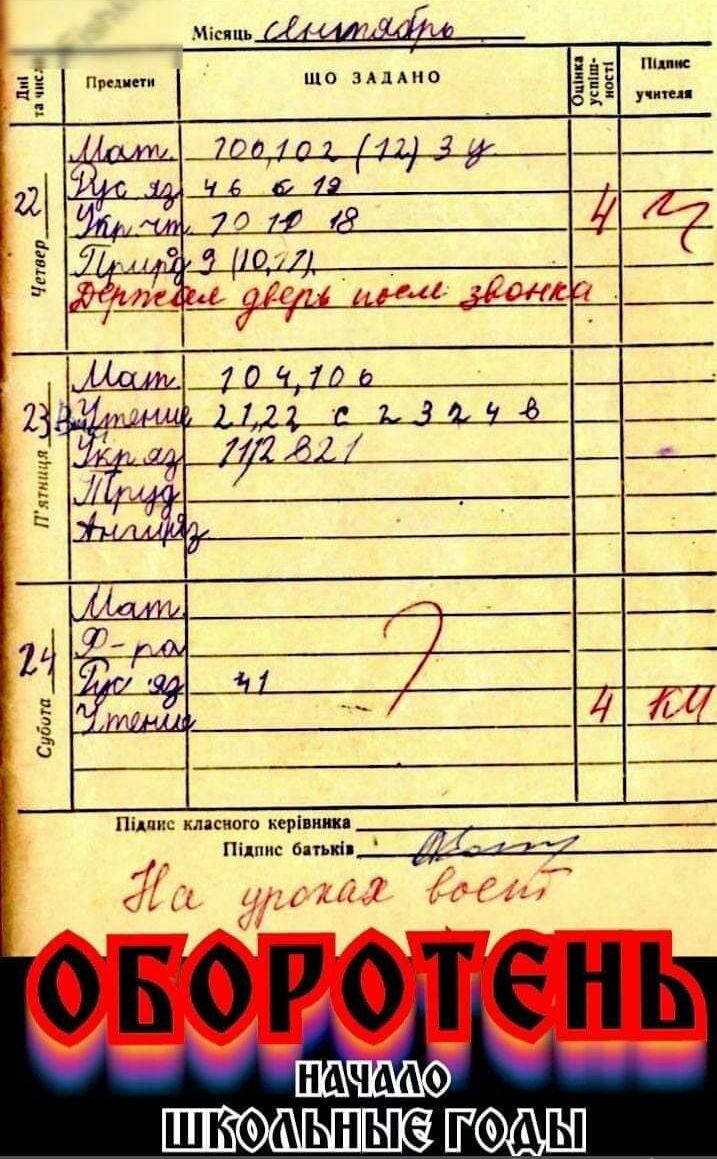 Місяць Сентябрь
Дні та числа Предмети ЩО ЗАДАНО Оцінка успіш-ності Підпис учителя
22 Четвер
Мат. 100,102 (12) 3 у
Рус яз 46 6 12
Укр чт. 18 4
Природ 9 (10,11).
Держал дверь посл звонка
23 П'ятниця
Мат. 104,106
Чтение 21,22 с 23 24 в
Укр яз
Труд
Англ яз
24 Субота
Мат.
Ф-ра
Рус яз 41
Чтение 4
Підпис класного керівника
Підпис батьків
На уроках воет
ОБОРОТЕНЬ
НАЧАЛО
ШКОЛЬНЫЕ ГОДЫ